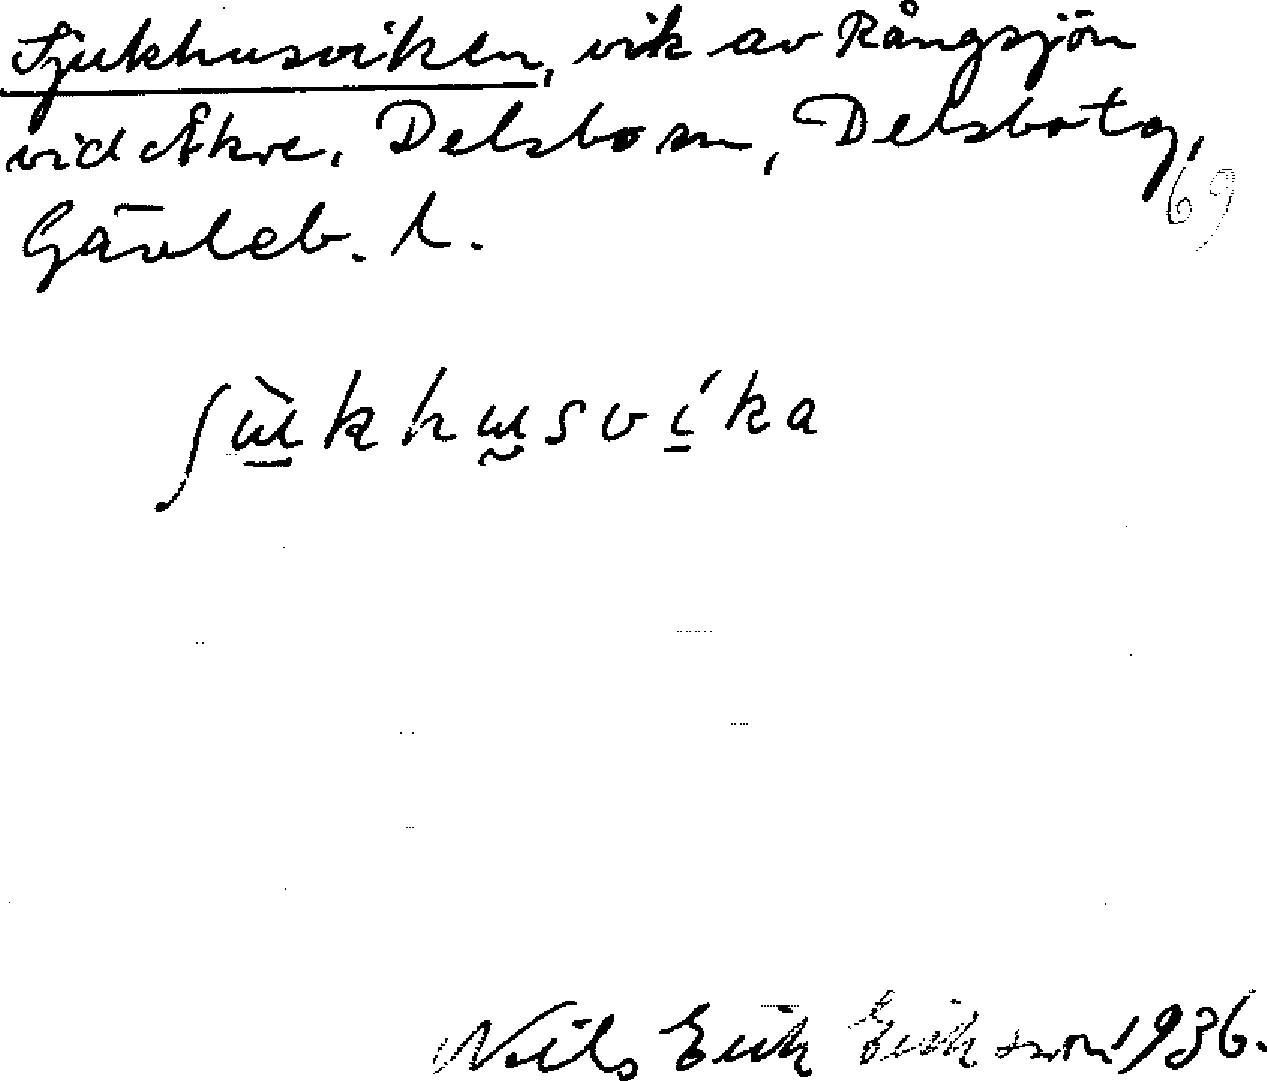 Sjukhusviken, vik av Rångsjön
vid Åkre, Delsbo sn, Delsbo tg,
69
Gävleb. l.
ʃɯ̀khɯsvíka
Nils Erik Eriksson 1936.